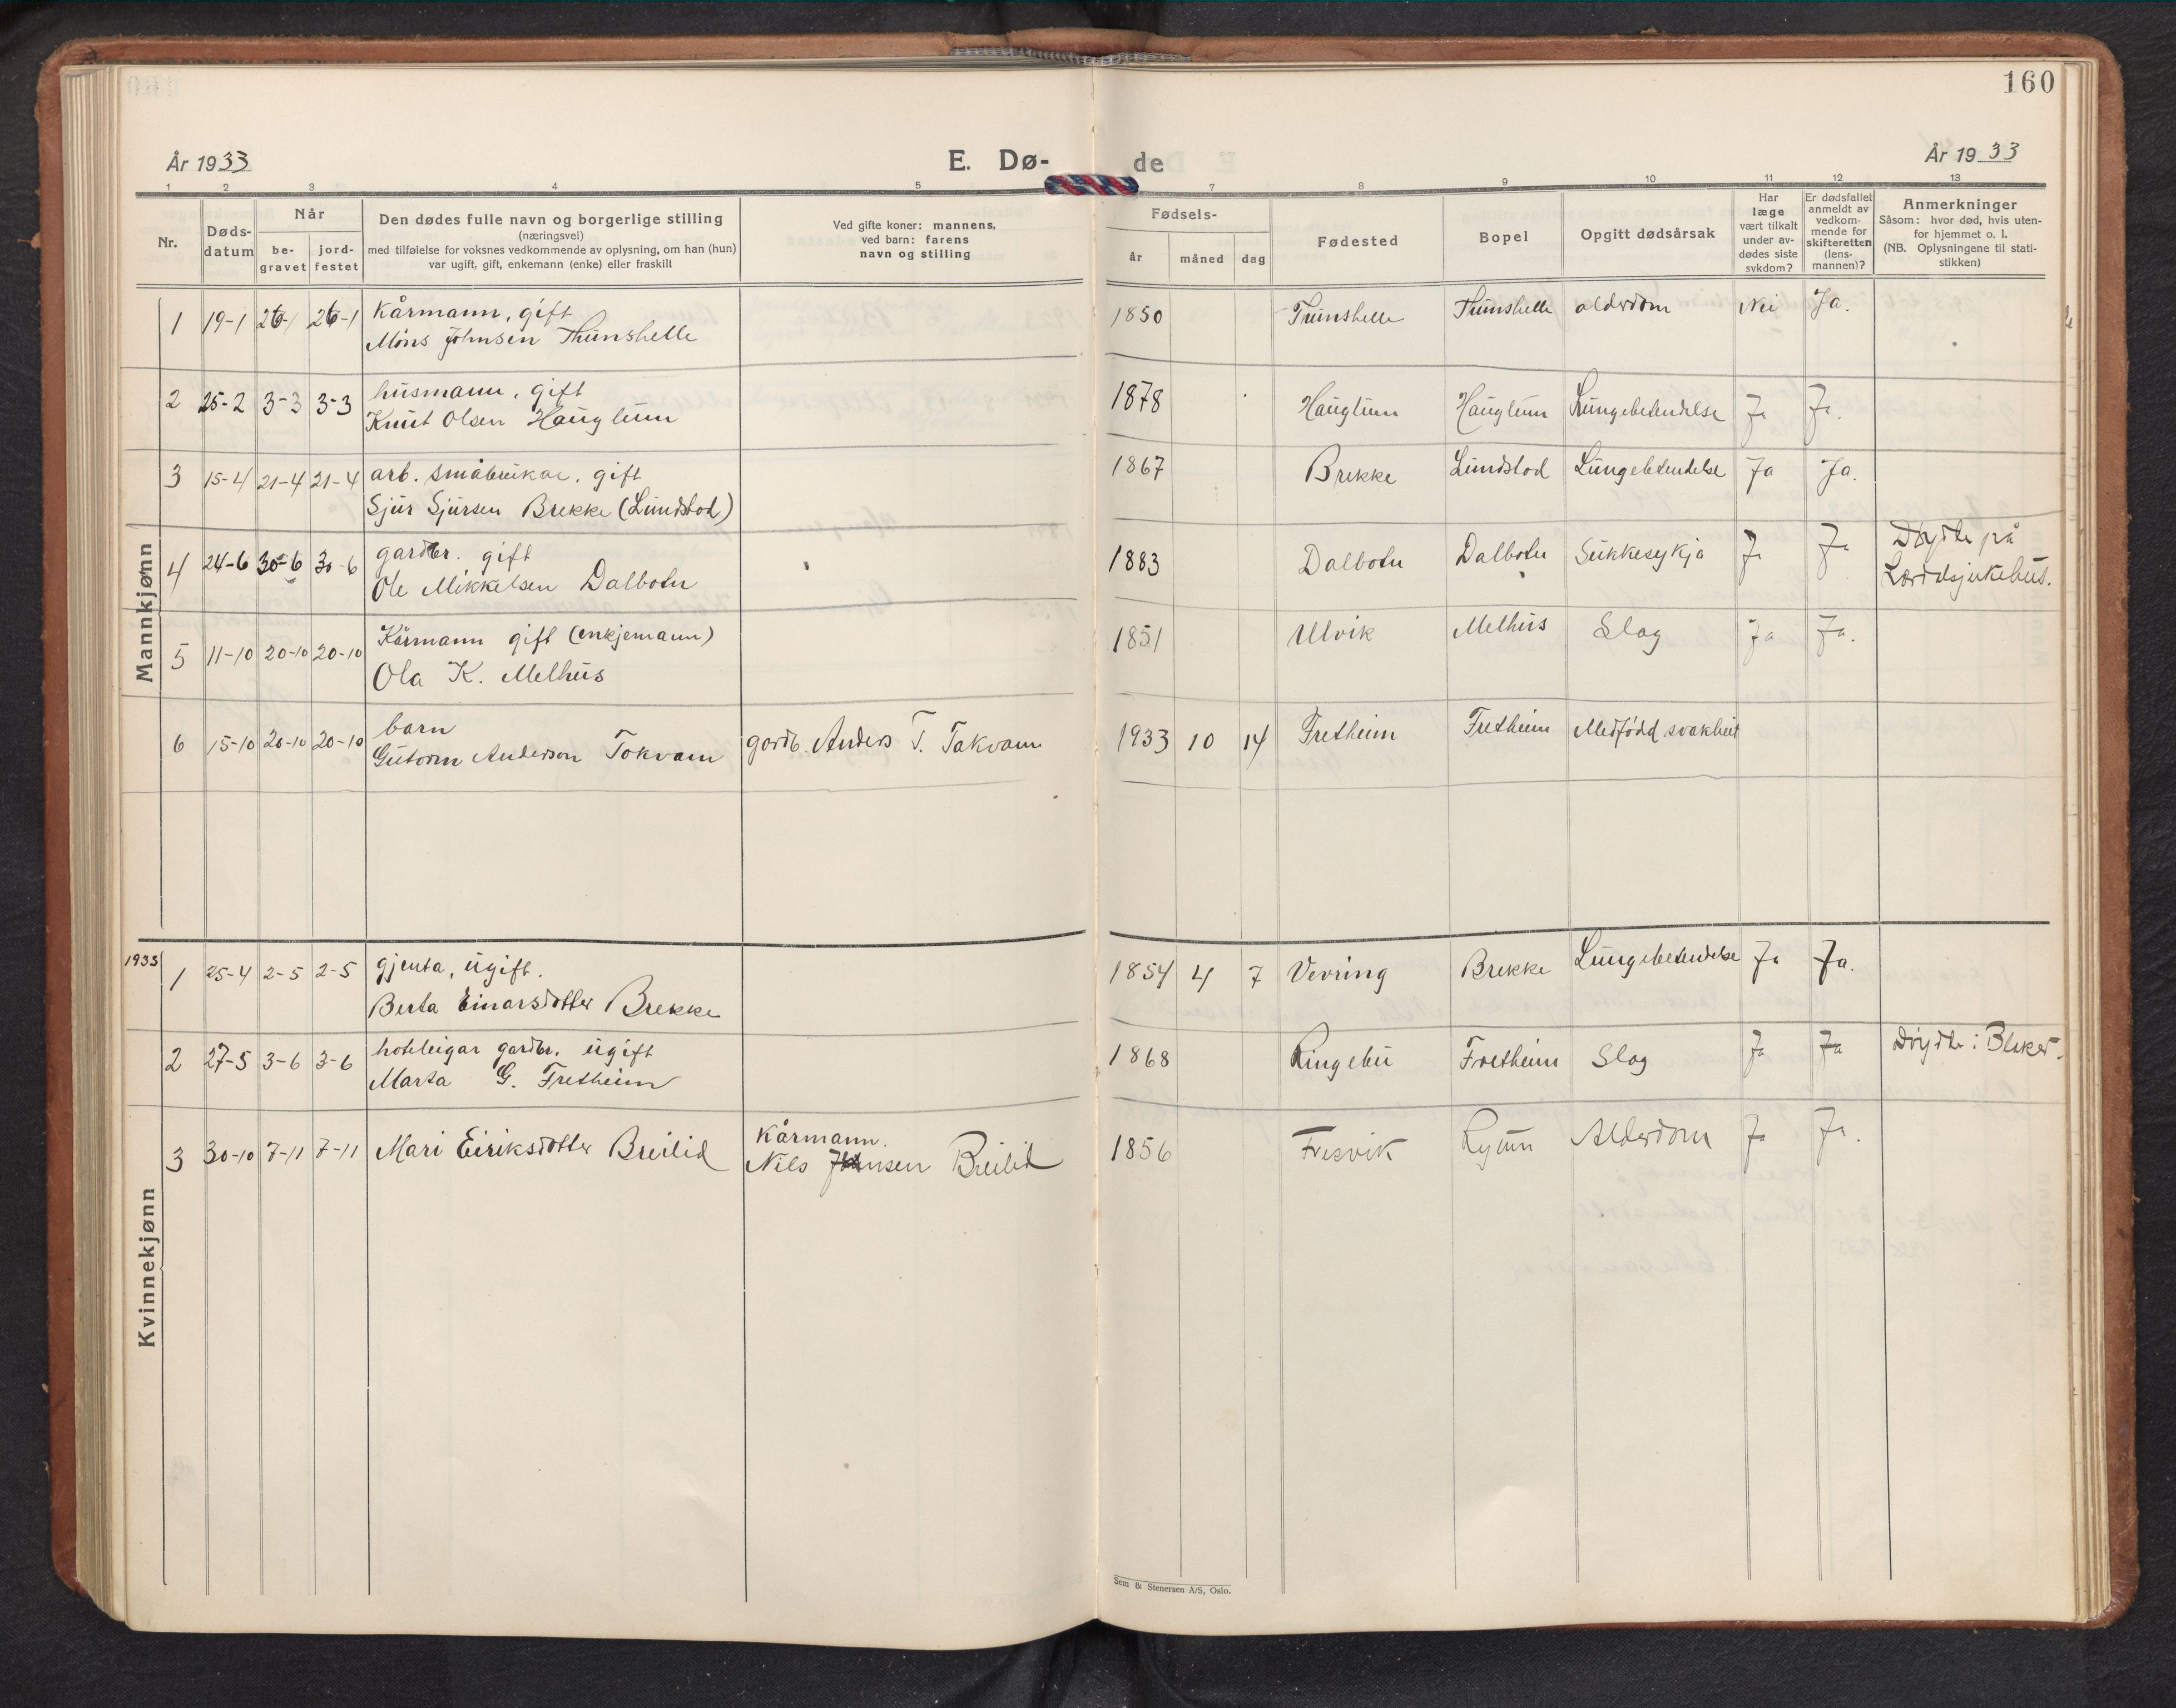 160
År 1933
E. Dø-
de
År 1933
1 2 3 4 5 7 8 9 10 11 12 13
Nr.
Døds-
datum
Når
be-
gravet
jord-
festet
Den dødes fulle navn og borgerlige stilling
(næringsvei)
med tilføielse for voksnes vedkommende av oplysning, om han (hun)
var ugift, gift, enkemann (enke) eller fraskilt
Ved gifte koner: mannens,
ved barn: farens
navn og stilling
Fødsels-
år måned dag
Fødested
Bopel
Opgitt dødsårsak
Har
læge
vært tilkalt
under av-
dødes siste
sykdom?
Er dødsfallet
anmeldt av
vedkom-
mende for
skifteretten
(lens-
mannen)?
Anmerkninger
Såsom: hvor død, hvis uten-
for hjemmet o. l.
(NB. Oplysningene til stati-
stikken)
Mannkjønn
1 19-1 26-1 26-1 Kårmann, gift
Mons Johnsen Thunshelle
1850 Tunshelle Thunshelle alderdom Nei Ja.
2 25-2 3-3 3-3 husmann, gift
Knut Olsen Hauglum
1878 Hauglum Hauglum Lungebetendelse Ja Ja.
3 15-4 21-4 21-4 arb. småbrukar, gift
Sjur Sjursen Brekke (Lundstod)
1867 Brekke Lundstod Lungebetendelse Ja Ja.
4 24-6 30-6 30-6 gardbr. gift
Ole Mikkelsen Dalbotn
1883 Dalbotn Dalbotn Sukkesykja Ja Ja Døydde på
Lærdalsjukehus.
5 11-10 20-10 20-10 Kårmann gift (enkjemann)
Ola K. Melhus
1851 Ulvik Melhus Slag Ja Ja.
6 15-10 20-10 20-10 barn
Gutorm Anderson Tokvam gardb. Anders T. Takvam
1933 10 14 Fretheim Fretheim Medfødd svakheit
Kvinnekjønn
1933
1 25-4 2-5 2-5 gjenta, ugift.
Berta Einarsdotter Brekke
1854 4 7 Vevring Brekke Lungebetendelse Ja Ja.
2 27-5 3-6 3-6 hoteleigar gardbr. ugift
Marta G. Fretheim
1868 Ringebu Fretheim Slag Ja Ja Døydde i Bleket.
3 30-10 7-11 7-11 Mari Eiriksdotter Breilid Kårmann.
Nils Johnsen Breilid
1856 Fresvik Alderdom Ja Ja.
Sem & Stenersen A/S, Oslo.